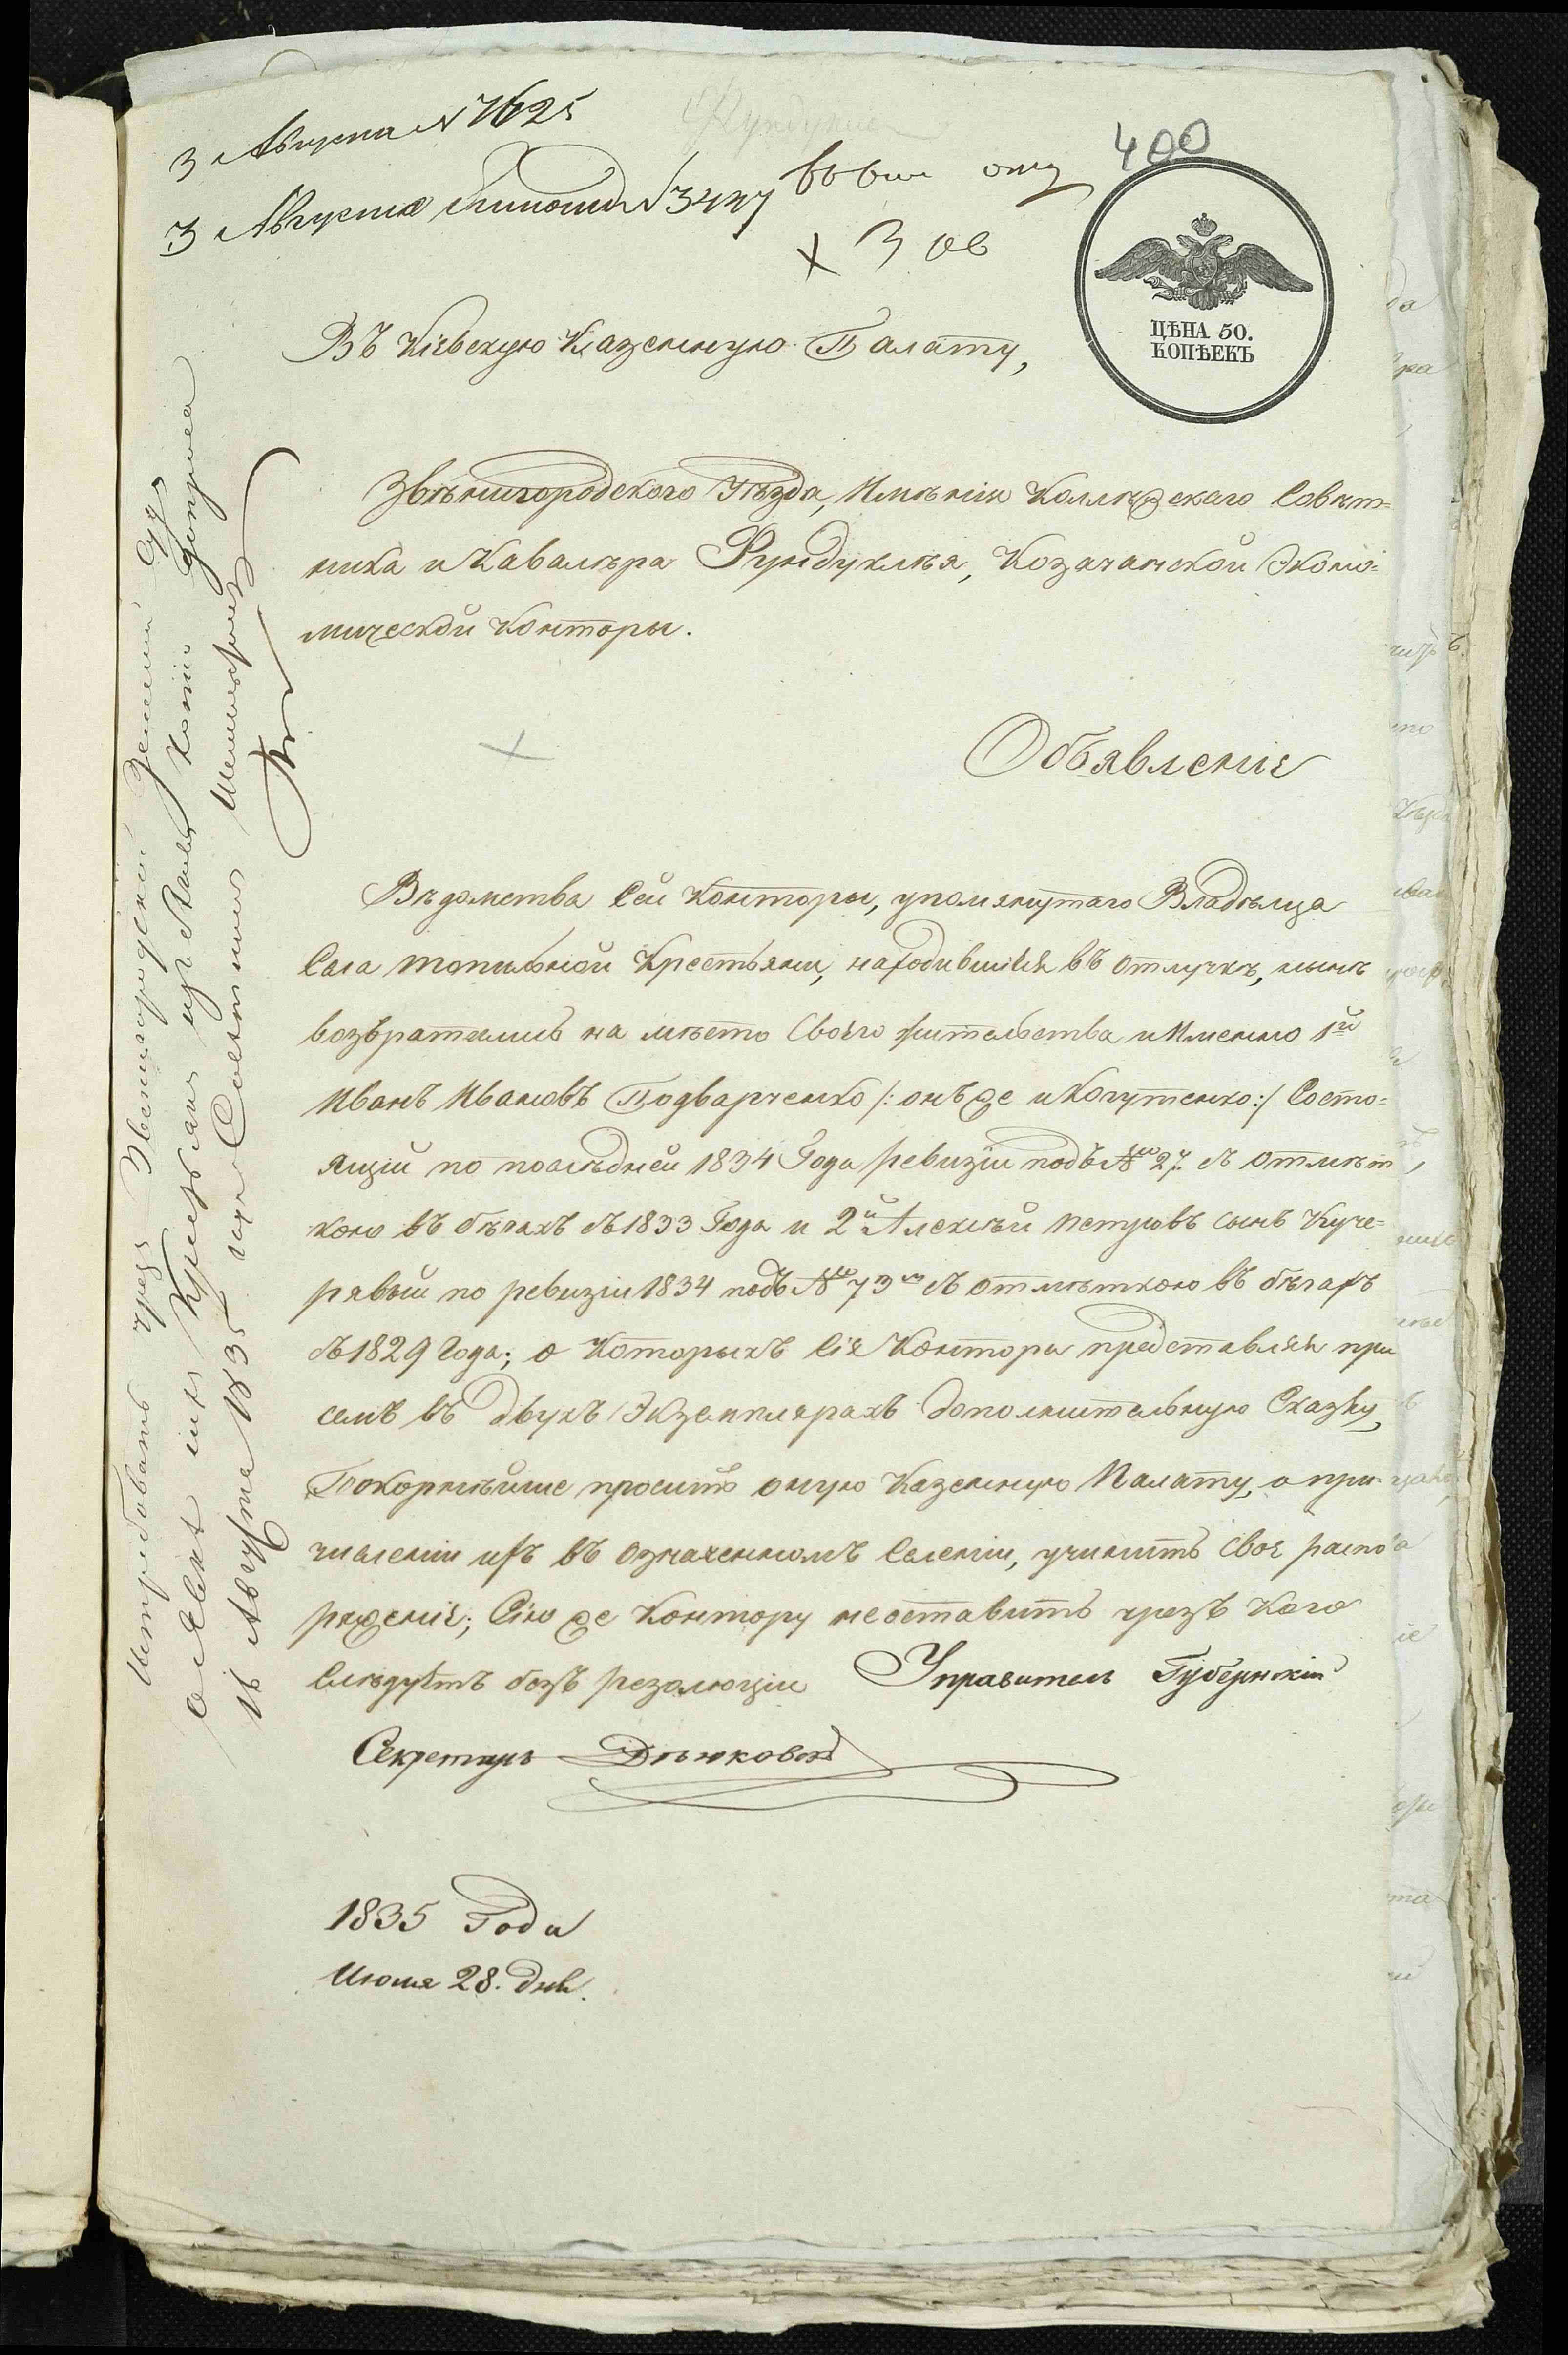 3 Августа N 7625
3 Августа N 3447
400
ЦѢНА 50.
КОПѢЕКЪ
Въ Кіевскую Казенную Палату,
Звѣнигородского Уѣзда, Имѣнія Коллѣжскаго Совѣт=
ника и Кавалѣра Фундуклѣя, Козачанской Эконо=
мической Конторы.
Объявленіе
Вѣдомства Сей Конторы, упомянутаго Владѣльца
Села Топильной Крестьяни, находившіеся въ отлучкѣ, нынѣ
возвратились на мѣсто Своего жительства и Именно 1й
Иванъ Ивановъ Подварченко /: онъ же и Когутенко :/ Состо=
ящій по послѣдней 1834 Года ревизіи подъ № 27. съ отмѣт
кою въ бѣгахъ съ 1833 Года и 2й Алексѣй Петровъ сынъ Куче=
рявый по ревизіи 1834 подъ № 73м съ отмѣткою въ бѣгахъ
съ 1829 Года; о Которыхъ Сія Контора представляя при
семъ въ двухъ Экземплярахъ дополнительную Сказку,
Покорнѣйше проситъ оную Казенную Палату, о при=
численіи ихъ въ означенномъ Селеніи, учинить свое распо
ряженіе; Сію же Контору неоставить чрезъ Кого
Слѣдуетъ безъ резолюціи Управитель Губернскій
Секретарь
1835 Года
Июля 28. дня.
Истребовать чрезъ Звенигородскій Земскій Судъ
о явкѣ сихъ Крестьянъ изъ бѣговъ копію допроса
16 Августа 1835 года Совѣтникъ